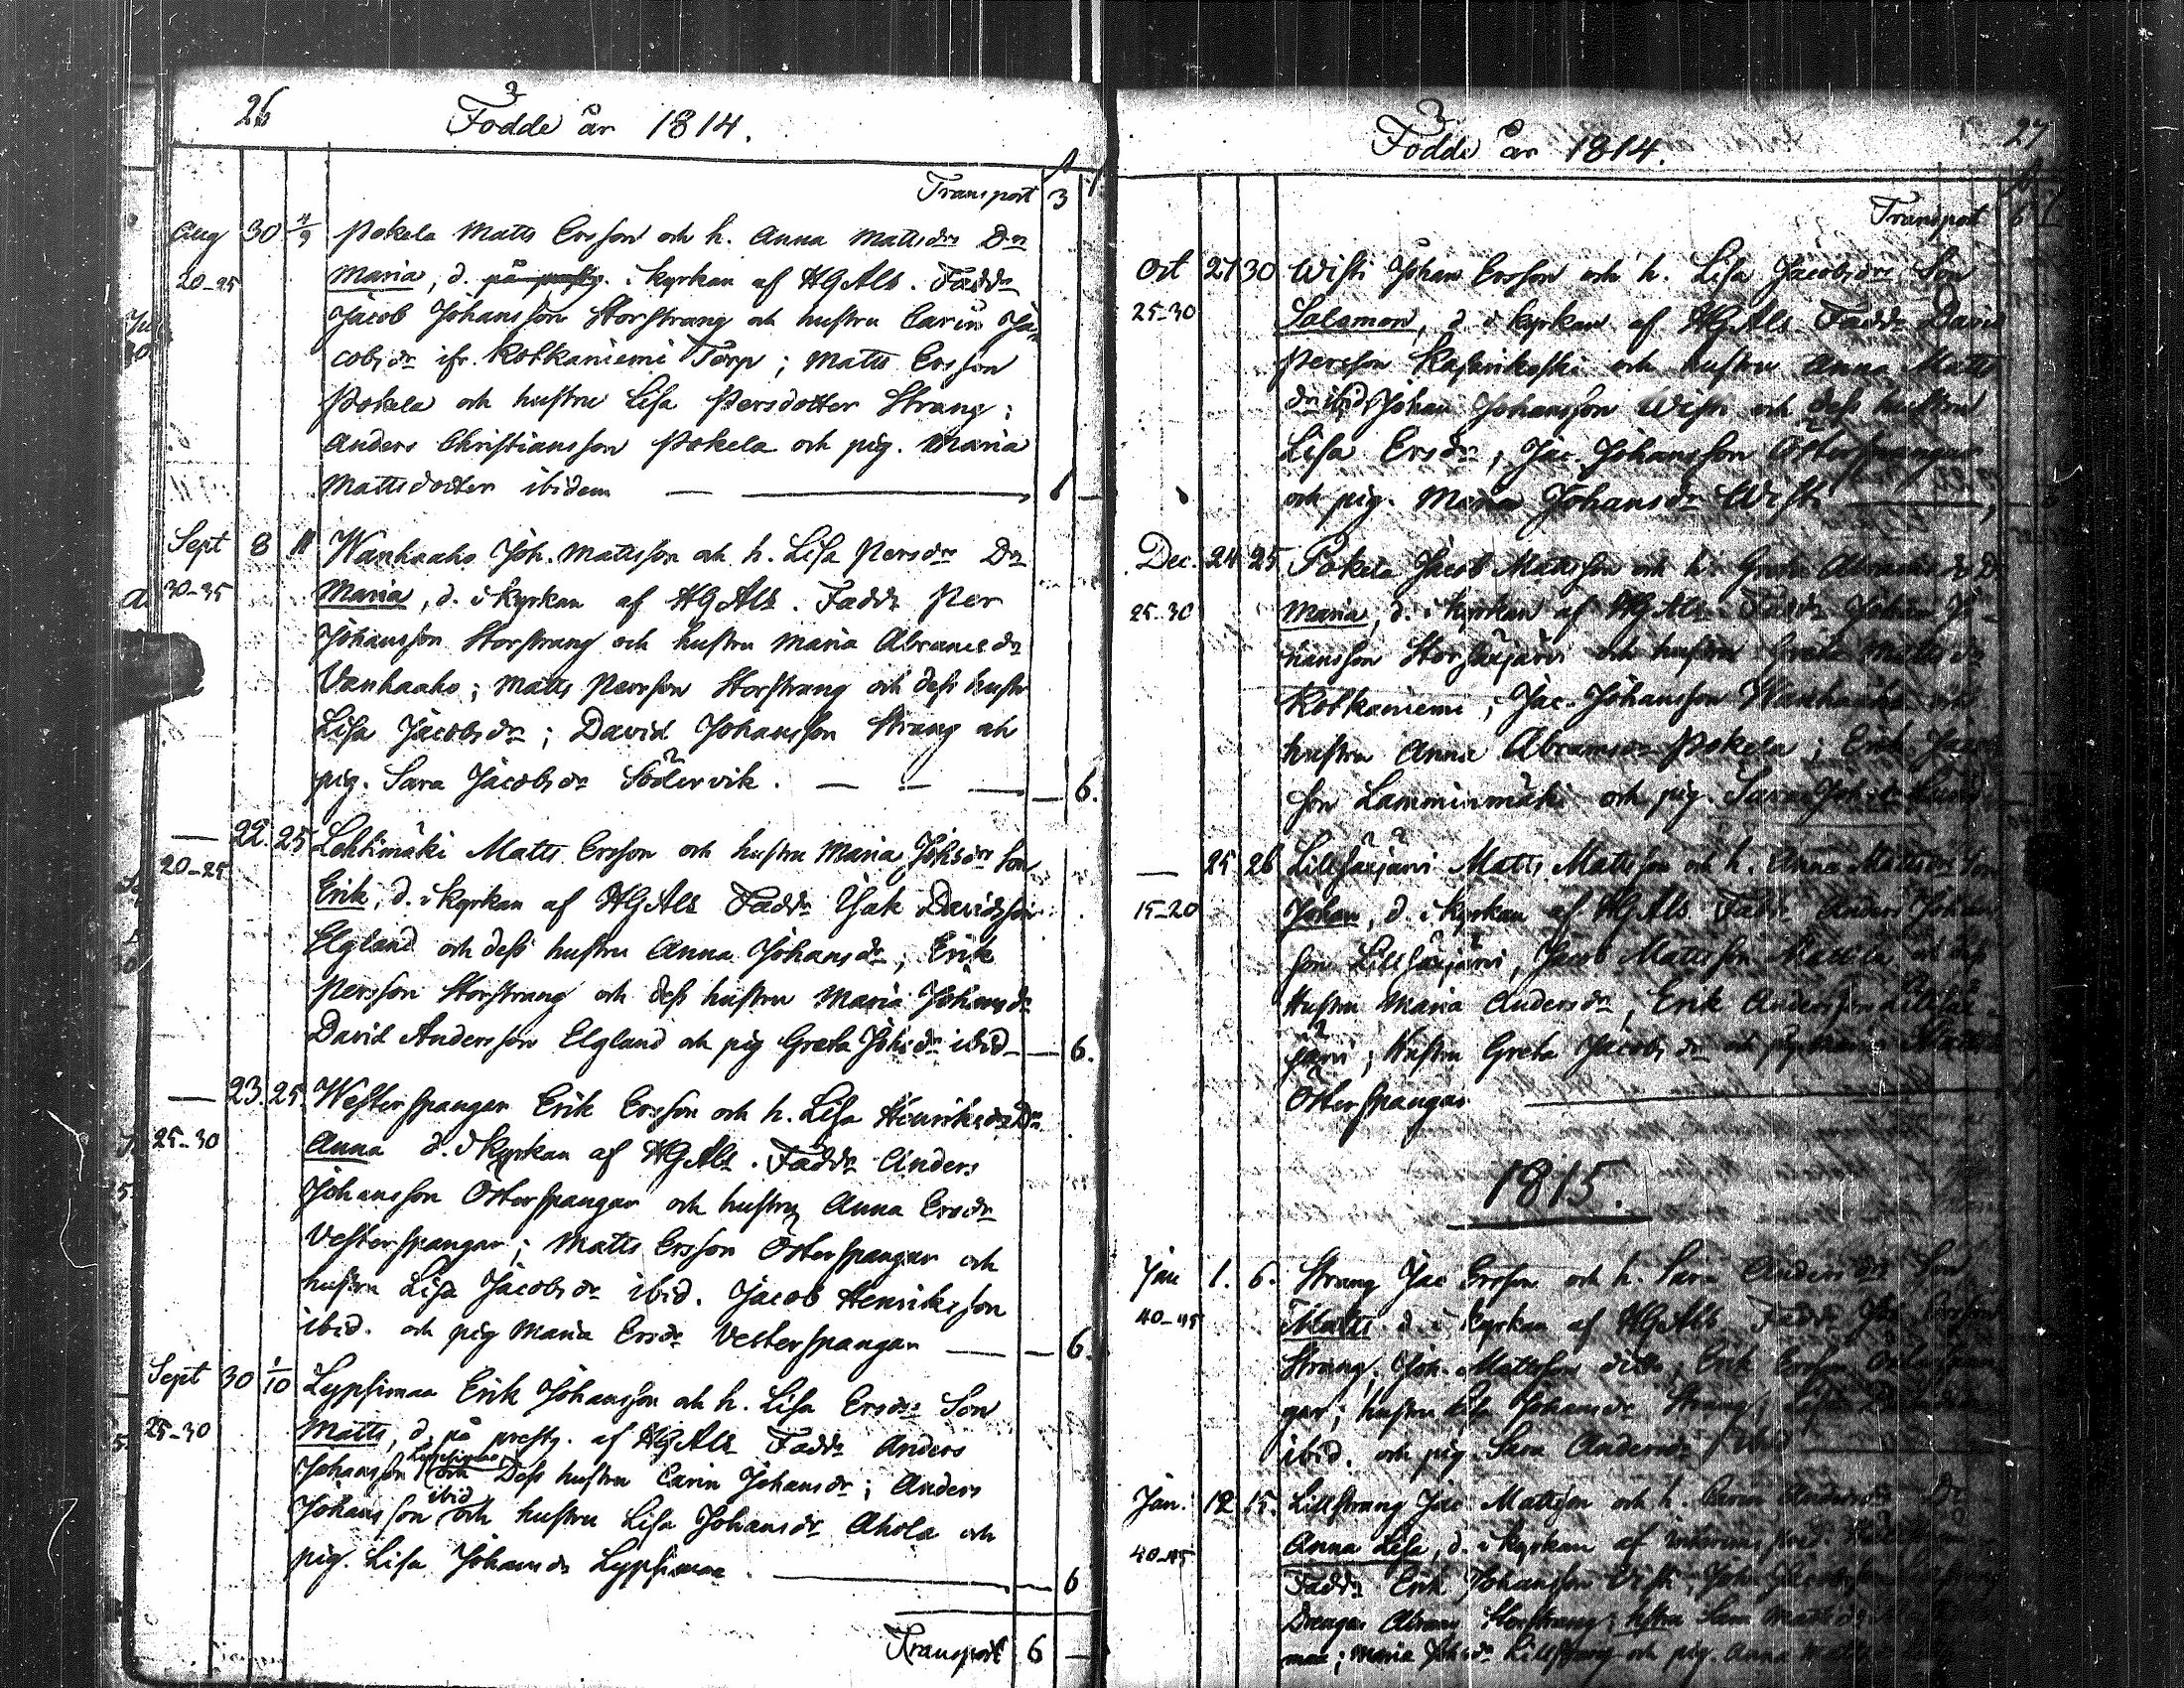 26 Födde år 1814.
Transport 3
Aug 30 4/9 Pokela Matts Ersson och h. Anna Mattsdr Dr
20-25 Maria, d. på prestg. i kyrkan af HGAls. Faddr
Jacob Johansson Storstrang och hustru Carin Ja-
cobsdr ifr. Kotkaniemi Torp; Matts Ersson
Pokela och hustru Lisa Persdotter Strang;
Anders Christiansson Pokela och pig. Maria
Mattsdotter ibidem
Sept 8 11 Wanhaaho Joh. Mattsson och h. Lisa Persdr Dr
30-35 Maria, d. i kyrkan af HGAls. Faddr Per
Johansson Storstrang och hustru Maria Abramsdr
Vanhaaho; Matts Persson Storstrang och dess hustr
Lisa Jacobsdr; David Johansson Strang och
pig. Sara Jacobsdr Södervik. 6.
22. 25 Lehtimäki Matts Ersson och hustru Maria Johsdr Son
20-25 Erik, d. i kyrkan af HGAls Faddr Isak Davidsson
Elgland och dess hustru Anna Johansdr; Erik
Persson Storstrang och dess hustru Maria Johansdr
David Andersson Elgland och pig Greta Johsdr ibid 6.
23. 25. Westerspangar Erik Ersson och h. Lisa Henriksdr Dr
25-30 Anna d. i kyrkan af HGAls. Faddr Anders
Johansson Österspangar och hustru Anna Ersdr
Vesterspangar; Matts Ersson Österspangar och
hustru Lisa Jacobsdr ibid. Jacob Henriksson
ibid. och pig Maria Ersdr Vesterspangar 6.
Sept 30 1/10 Lypsimaa Erik Johansson och h. Lisa Ersdr Son
25-30 Matts, d. på prestg. af HGAls Faddr Anders
Johansson Lypsimaa och Dess hustru Carin Johansdr; Anders
Johansson ibid och hustru Lisa Johansdr Ahola och
pig. Lisa Johansdr Lypsimaa. 6
Transport 6
Födde år 1814. 27
Transport 6
Oct 27 30 Wisti Johan Ersson och h. Lisa Jacobsdr Son
25-30 Salomon, d. i kyrkan af HGAls Faddr David
Persson Kaharikoski och hustru Anna Matts
dr ibid Johan Johansson Wisti och dess hustru
Lisa Ersdr; Jac. Johansson Österspangar
och pig. Maria Johansdr Wisti
Dec. 24 25 Pokela Jacob Mattsson och h. Greta Abramsdr D
25-30 Maria, d. i kyrkan af HGAls Faddr Johan Jo-
hansson Storsäxjärvi och hustru Greta Mattsdr
Kotkaniemi; Jac. Johansson Wanhaaho och
hustru Anna Abramsdr Pokela; Erik Jacob
son Lamminmäki och pig.
25 26 Lillsäxjärvi Matts Mattsson och h. Anna Mattsdr Son
15-20 Johan, d. i kyrkan af HGAls Faddr Anders Johans
son Lillsäxjärvi, Jacob Mattsson Mattila och dess
Hustru Maria Andersdr, Erik Andersson Lillsäx-
järvi; Hustru Greta Jacobsdr och pig Maria
Österspangar
1815.
Jan 1. 6. Strang Jac Ersson och h. Sara Andersdr Son
40-45 Matts d. i kyrkan af HGAls Faddr Jac Persson
Strang; Joh. Mattsson; Erik Ersson
gar; hustru Johansdr Strang;
ibid. och pig. Sara Andersdr ibid
Jan. 12 15. Lillstrang Jac Mattsson och h. Carin Andersdr Dr
40-45 Anna Lisa, d. i kyrkan af
Faddr Erik Johansson Wisti;
Drengen Abram Storstrang; Sara
maa; Maria Johsdr Lillstrang och pig. Anna